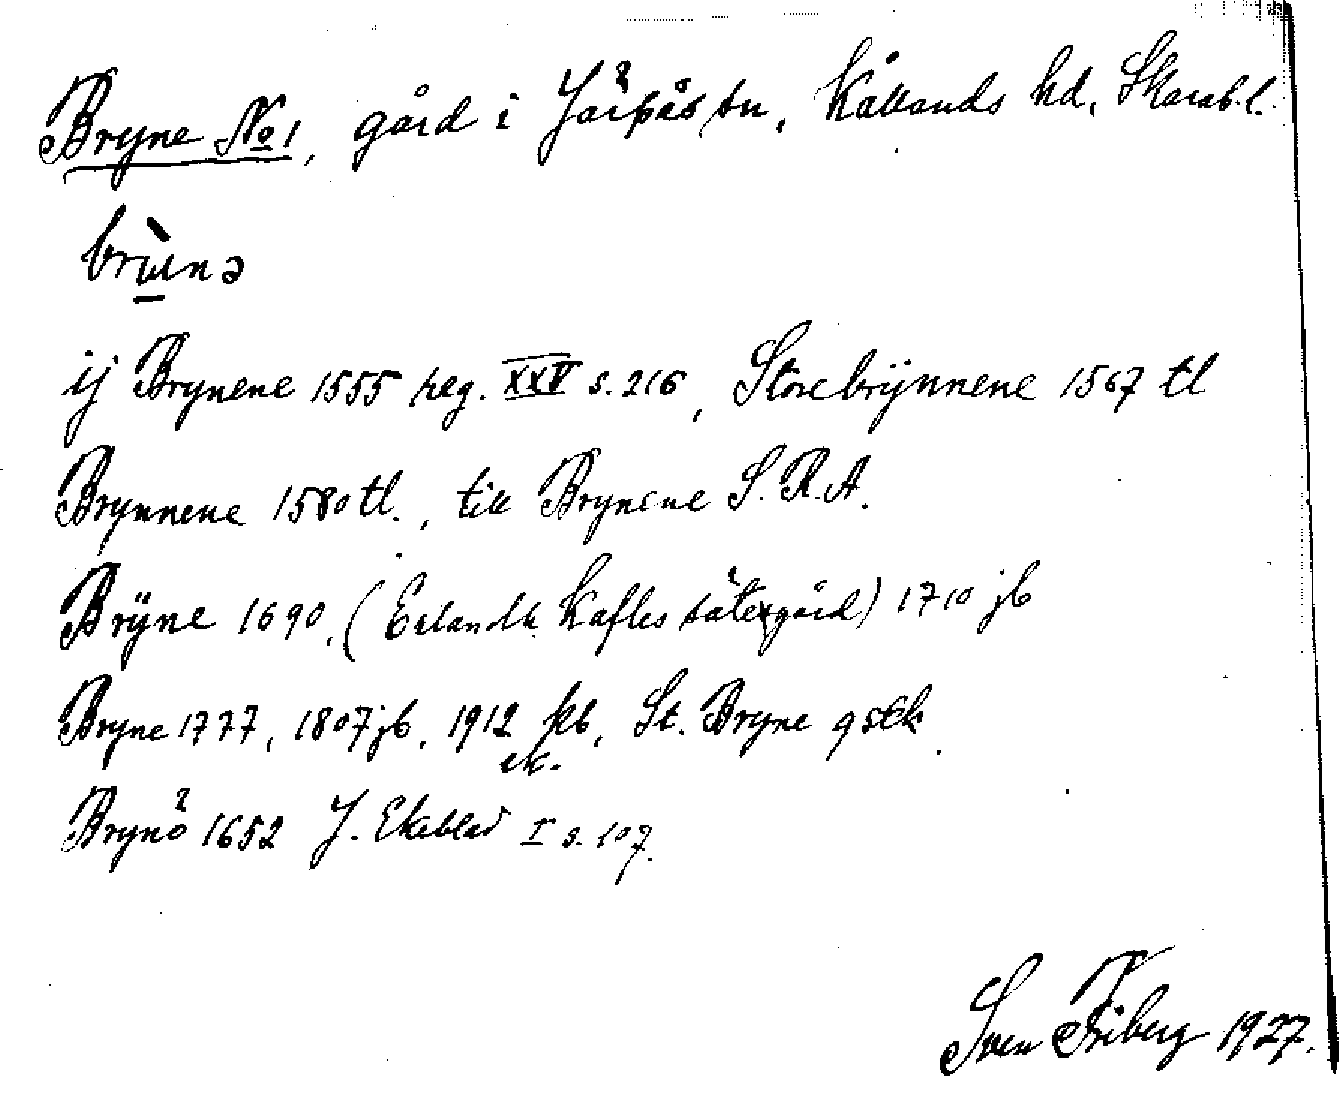 Bryne No 1, gård i Järpås sn, Kållands hd, Skarab.l.
brùnə
ij Brynene 1555 reg. XXV s. 216, Storebrÿnnene 1567 tl
Brynnene 1580 tl., till Brynene S.R.A.
Brÿne 1690, (Erlandh Kafles sätergård) 1710 jb
Bryne 1777, 1807 jb, 1912 kb, St. Bryne gstk
ek.
Brynö 1652 J. Ekeblad I s. 107.
Sven Friberg 1927.